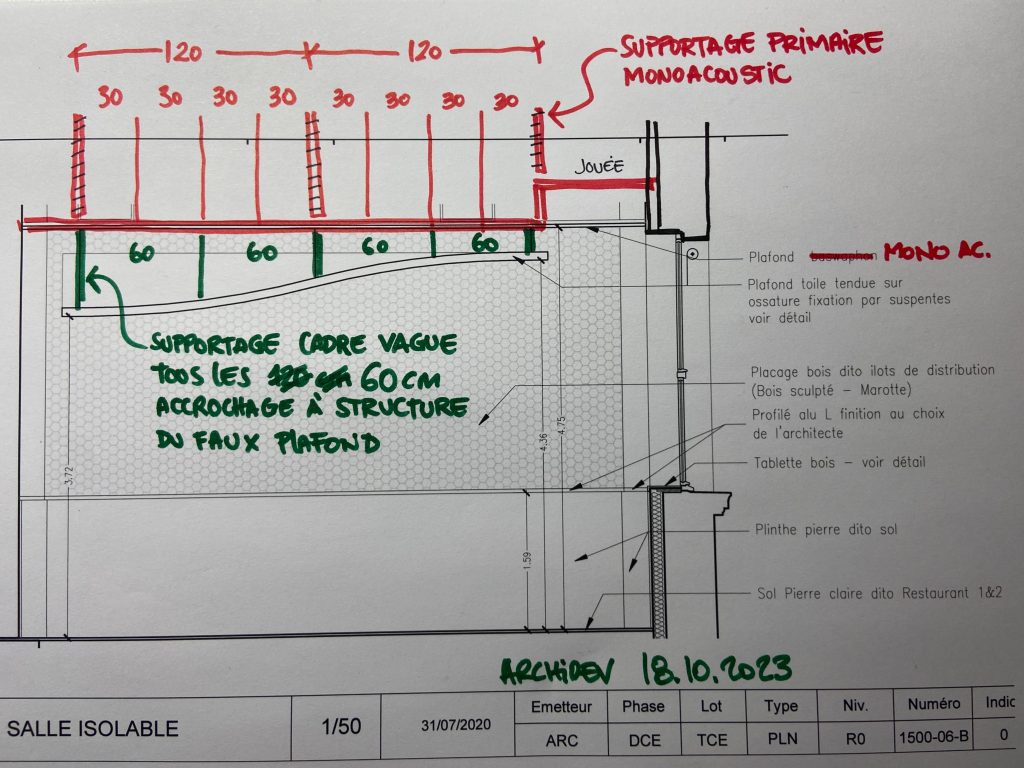 120 120
SUPPORTAGE PRIMAIRE
MONOACOUSTIC
30 30 30 30 30 30 30 30
JOUÉE
60 60 60 60
Plafond baswaphon MONO AC.
Plafond toile tendue sur
ossature fixation par suspentes
voir détail
SUPPORTAGE CADRE VAGUE
TOUS LES 120 cm 60 CM
ACCROCHAGE À STRUCTURE
DU FAUX PLAFOND
Placage bois dito ilots de distribution
(Bois sculpté - Marotte)
Profilé alu L finition au choix
de l'architecte
Tablette bois - voir détail
3.72
4.36
4.75
1.59
Plinthe pierre dito sol
Sol Pierre claire dito Restaurant 1&2
ARCHIDEV 18.10.2023
SALLE ISOLABLE 1/50 31/07/2020
Emetteur Phase Lot Type Niv. Numéro Indic
ARC DCE TCE PLN R0 1500-06-B 0